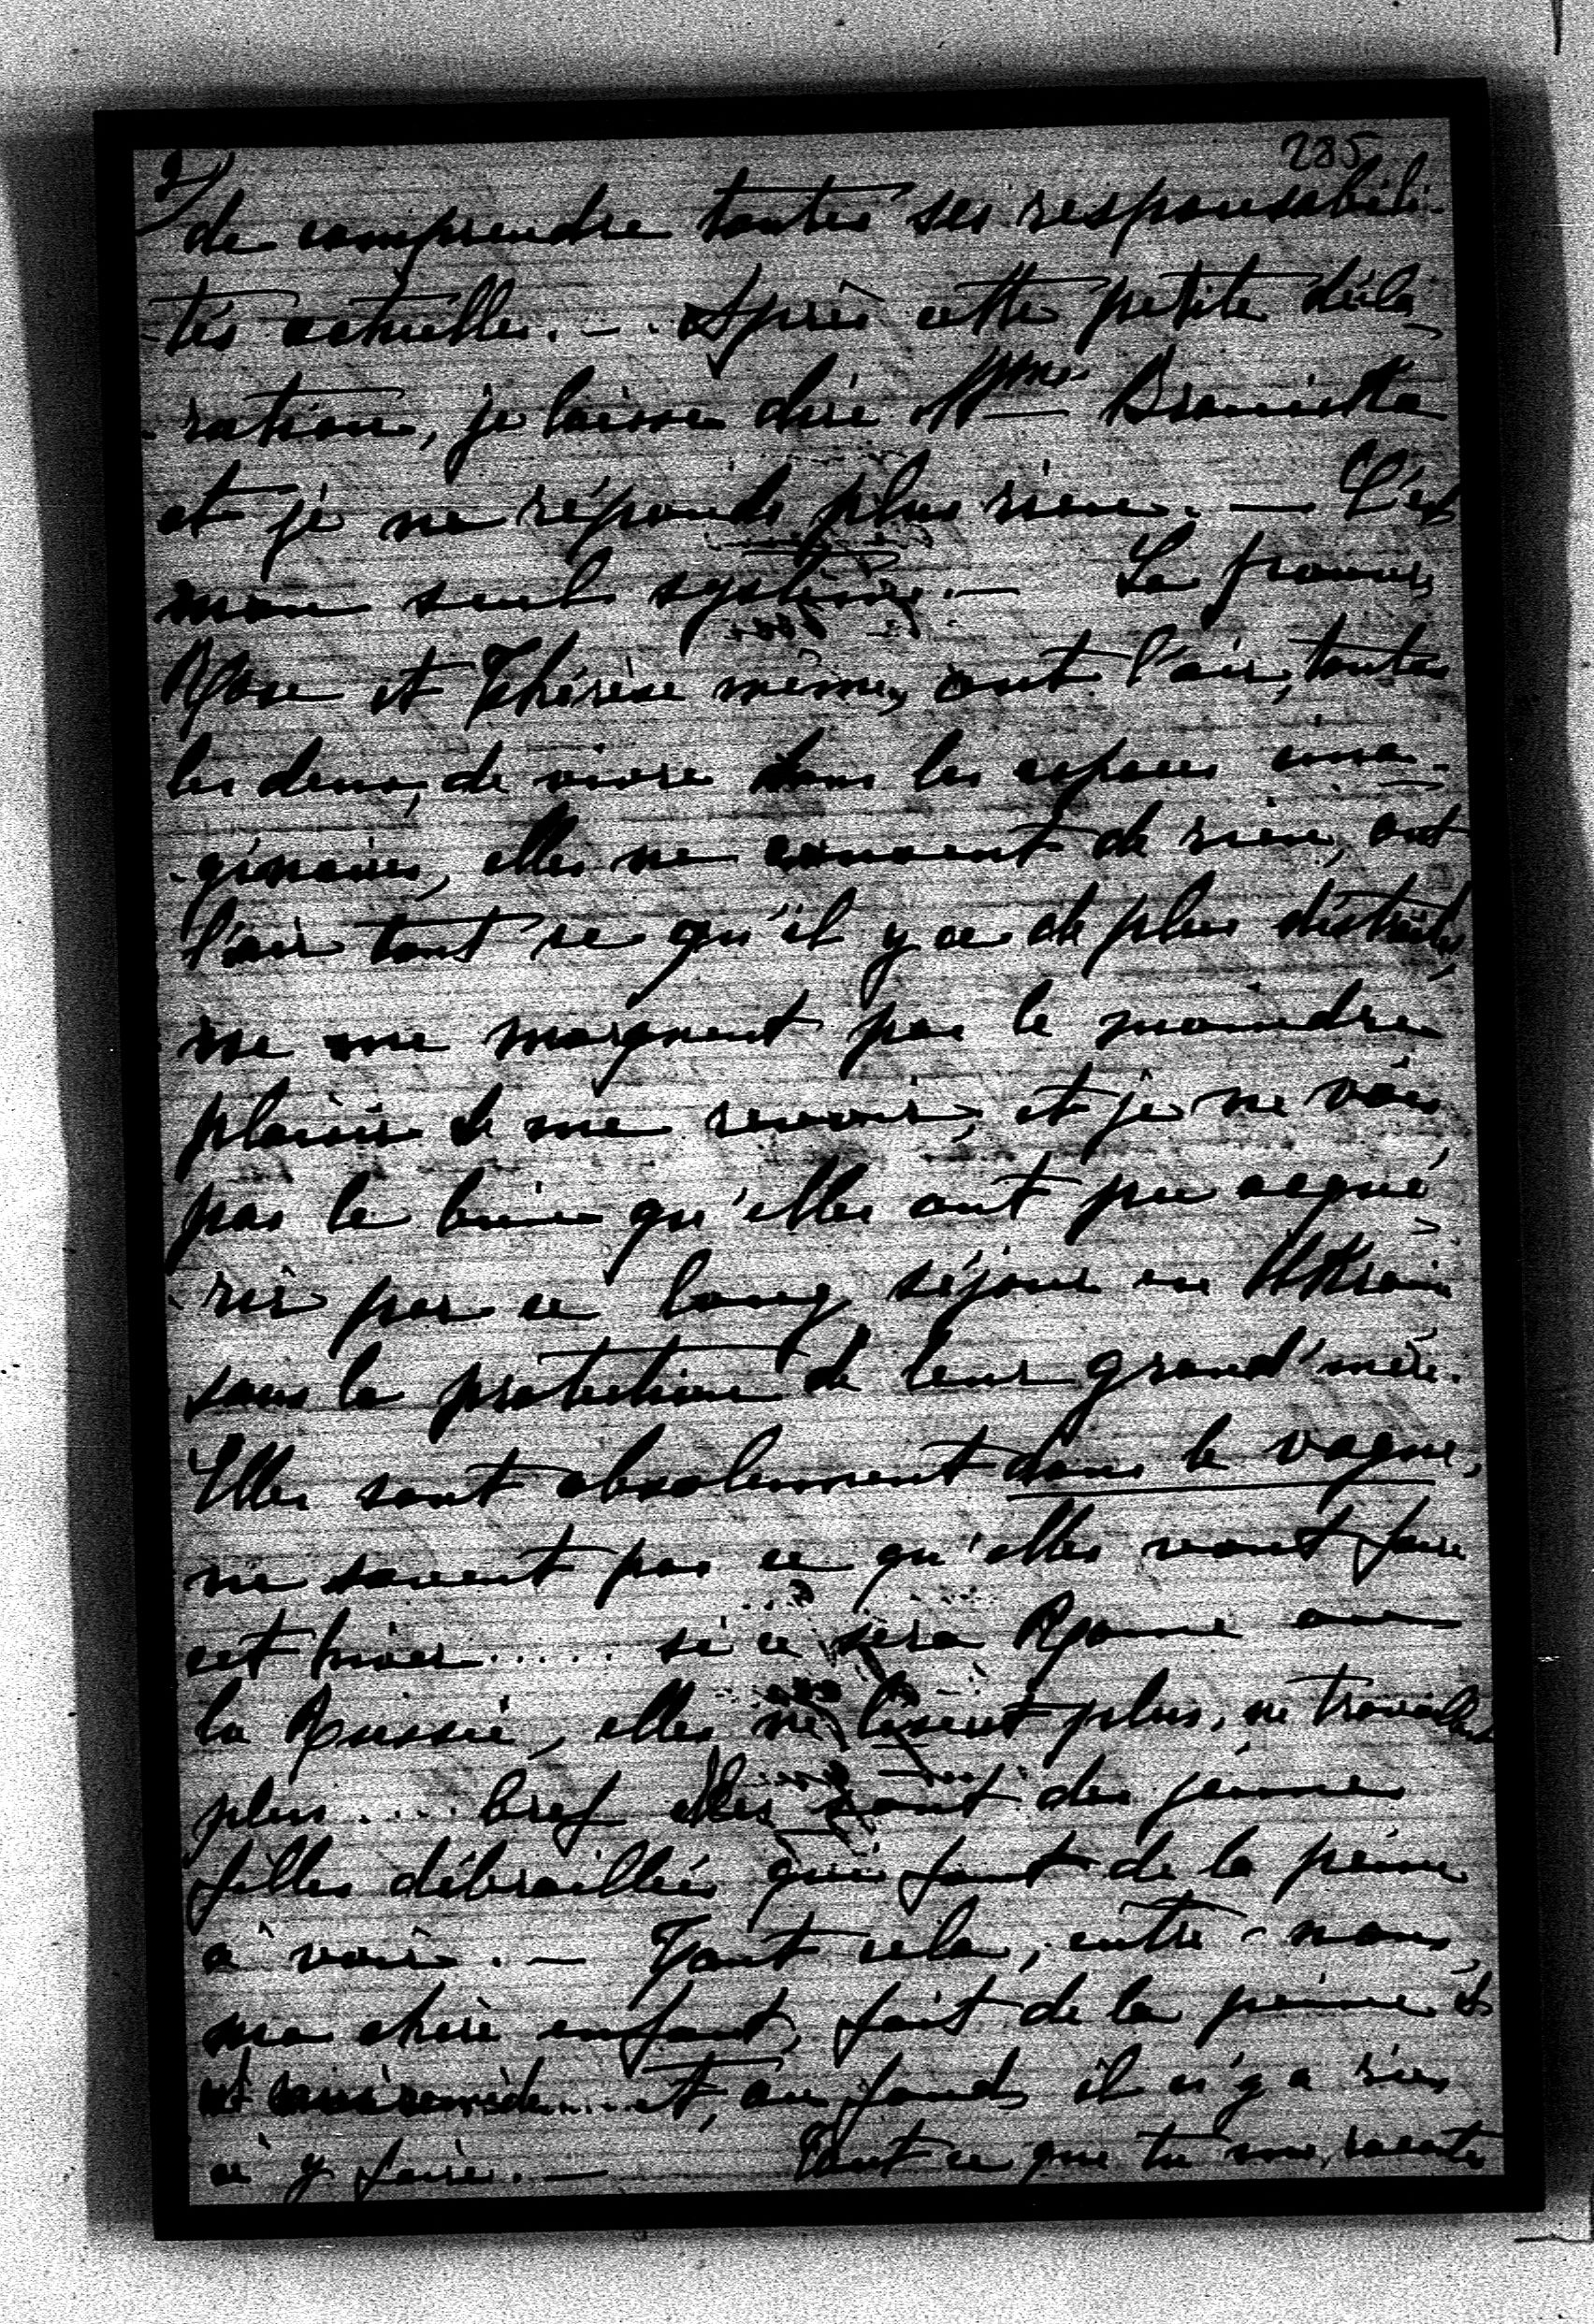 285
2/
de comprendre toutes ses responsabili-
-tés actuelles. — Après cette petite décla-
-ration, je laisse dire Mme Branicka
et je ne réponds plus rien. — C'est
mon seul système. — La pauvre
Rose et Thérèse même, ont l'air, toutes
les deux, de vivre dans les espaces ima-
-ginaires, elles ne causent de rien, ont
l'air tout ce qu'il y a de plus distraites,
ne me moignent pas le moindre
plaisir de me revoir, et je ne vois
pas le bien qu'elles ont pu acqué-
-rir par ce long séjour en Ukraine
sous la protection de leur grand'mère.
Elles sont absolument dans le vague,
ne savent pas ce qu'elles vont faire
cet hiver..... si ce sera Rome ou
la Russie, elles ne lisent plus, ne travaillent
plus.... bref elles sont des jeunes
filles débraillées qui font de la peine
à voir. — Tout cela, entre-nous,
ma chère enfant, fait de la peine et
est sans remède.... et, au fond, il n'y a rien
à y faire. — Tout ce que tu me racontes